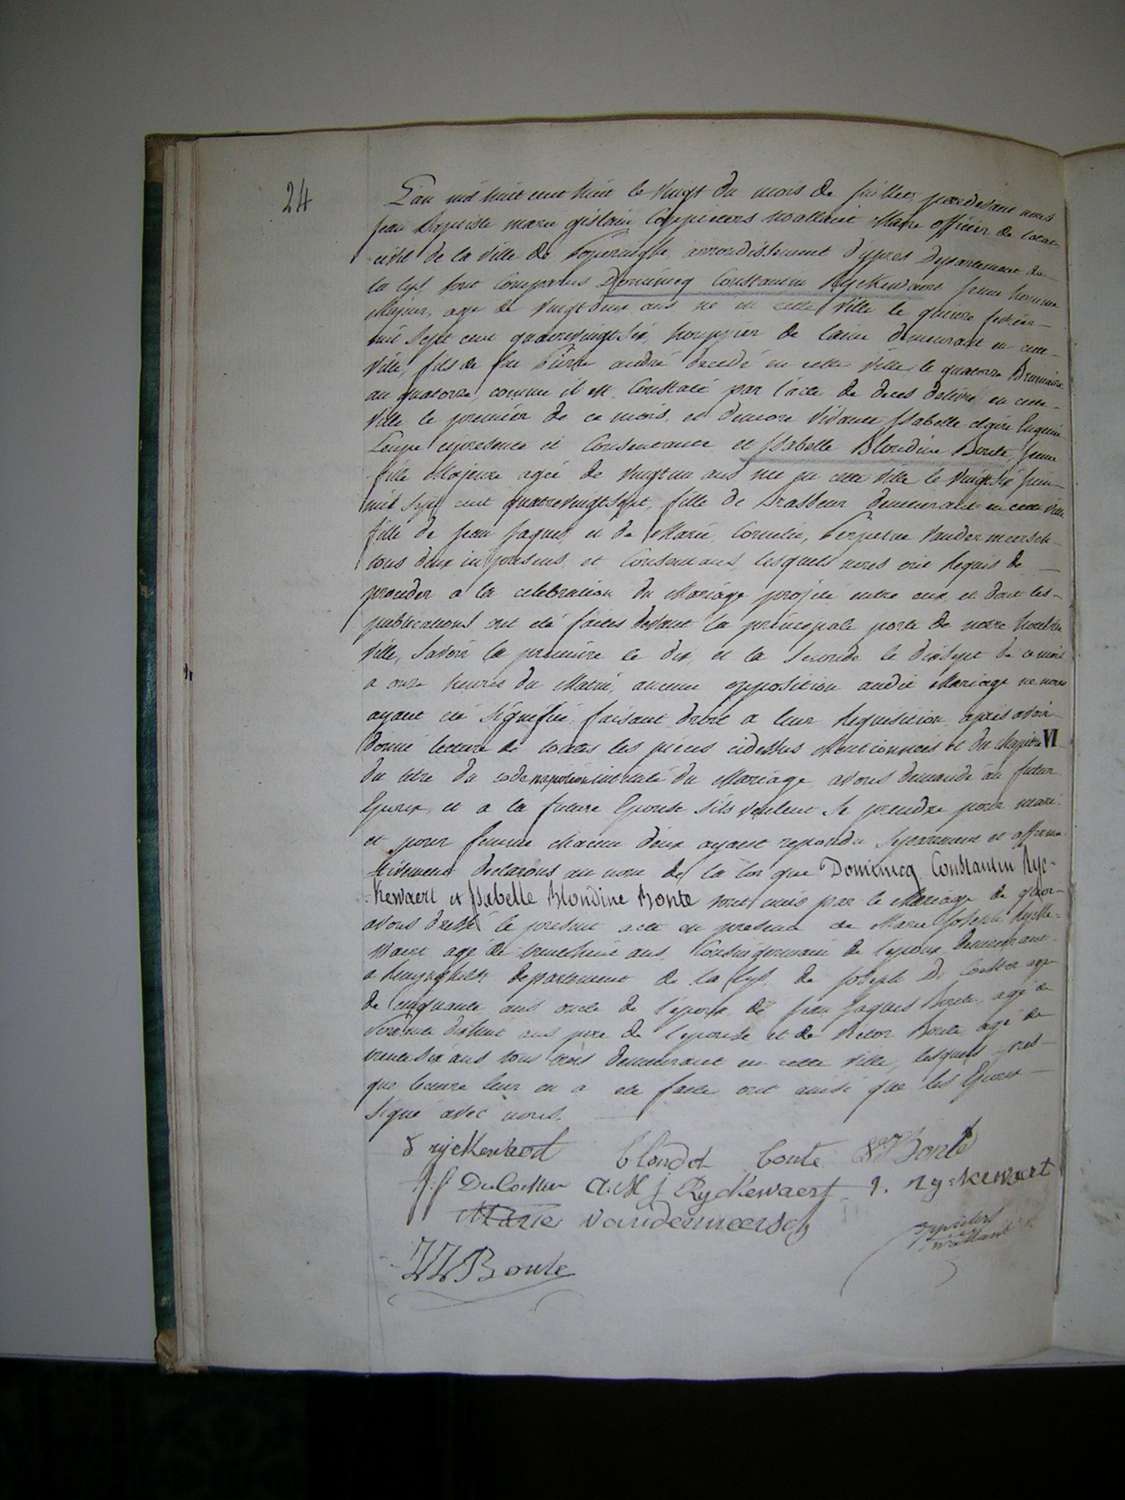 24
L'an mil huit cent huit le vingt du mois de juillet pardevant nous
jean Baptiste marie gislain Maire officier de l'etat
civil de la ville de Poperinghe, arrondissement d'ypres Departement de
la Lys sont comparus Dominicq Constantin Ryckewaert jeune homme
Majeur, agé de vingt deux ans né en cette ville le quinze fevrier
mil sept cent quatrevingt six, houppier de laine demeurant en cette
ville, fils de feu Pierre andré decedé en cette ville le quatorze Brumaire
an quatorze, comme il est constaté par l'acte de deces delivré en cette
ville le premier de ce mois, et d'encore vivante Isabelle claire Eugenie
presence et consentante et Isabelle Blondine Bonte jeune
fille Majeure agée de vingt un ans née en cette ville le vingt six juin
mil sept cent quatrevingt sept, fille de Brasseur demeurant en cette ville
fille de jean jaques et de Marie Cornelie, Perpetue vandermeersch
tous deux ici presens et consentans, lesquels nous ont requis de
proceder a la celebration du Mariage projeté entre eux et dont les
publications ont été faites devant la principale porte de notre hotel de
ville, savoir la premiere le dix et la seconde le dixsept de ce mois
a onze heures du Matin, aucune opposition audit Mariage ne nous
ayant été signifiée, faisant droit a leur requisition, après avoir
donné lecture de toutes les pièces cidessus Mentionnées et du chapitre VI
du titre du code napoléon intitulé du Mariage avons demandé au futur
Epoux et a la future Epouse s'ils veulent se prendre pour mari
et pour femme chacun d'eux ayant repondu separement et affirma
tivement declarons au nom de la loi que Dominicq Constantin Ryc-
kewaert et Isabelle Blondine Bonte sont unis par le Mariage de quoi
avons dressé le present acte en presence de Marie Joseph Rycke-
waert agé de ans, Cousin germain de l'epoux demeurant
a departement de la Lys, de joseph De Cocker agé
de cinquante ans oncle de l'epoux de jean jaques Bonte agé de
ans pere de l'epouse et de Victor Bonte agé de
trente six ans tous trois demeurant en cette ville, lesquels apres
que lecture leur en a été faite ont ainsi que les Epoux
signé avec nous.
d ryckewaert blondet bonte Bonte
j.f De Cocker A.M J Ryckewaert J. Ryckewaert
Marie vandermeersch
JJ Bonte